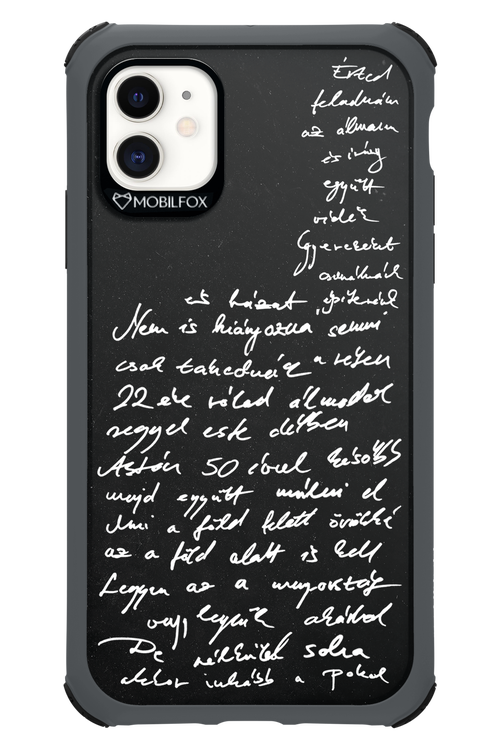 MOBILFOX
Érted
feladnám
az álmaim
és így
együtt
vidék
Gyerekeket
csinálnánk
és házat építenénk
Nem is hiányozna semmi
csak takaródnék a rétem
22 éve rólad álmodok
reggel este délben
Aztán 50 évvel később
majd együtt múlni el
Ami a föld felett örökké
az a föld alatt is kell
Legyen az a menyország
vagy legyünk akárhol
De nélküled soha
akkor inkább a pokol